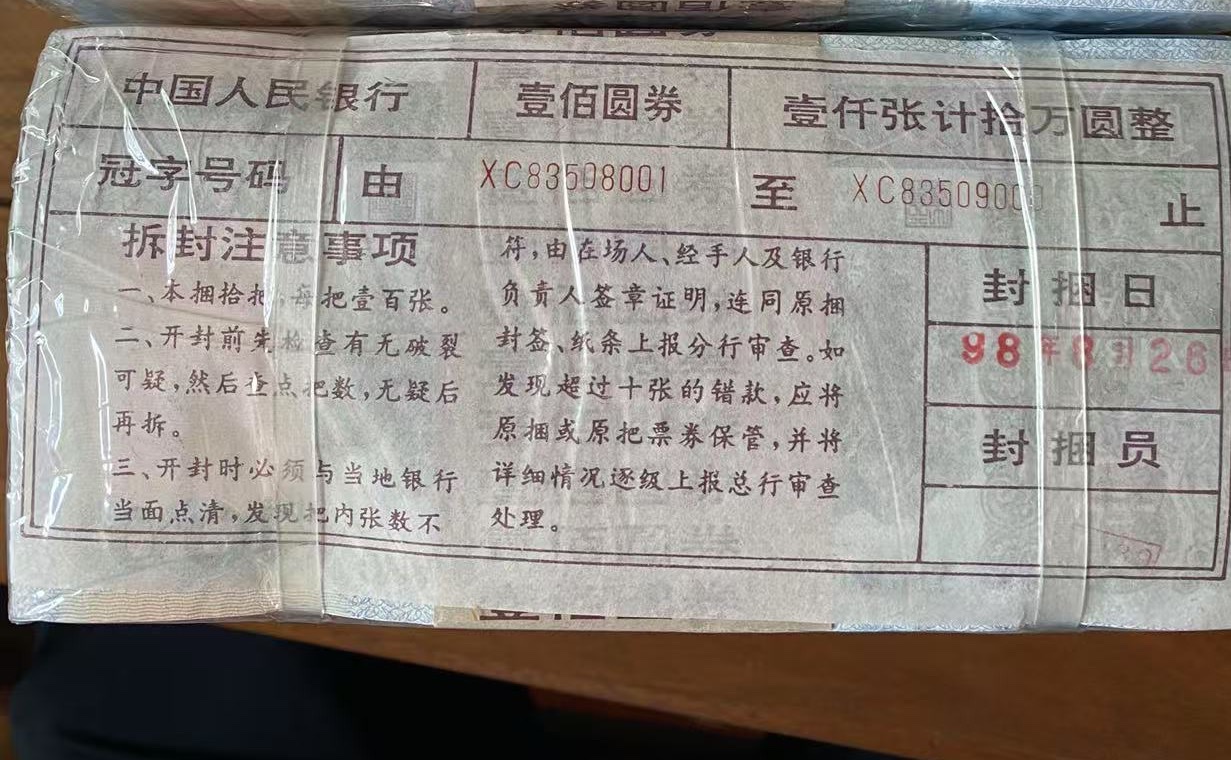 中国人民银行 壹佰圆券 壹仟张计拾万圆整
冠字号码 由 XC83508001 至 XC83509000 止
拆封注意事项
一、本捆拾把,每把壹百张。
二、开封前先检查有无破裂
可疑,然后查点把数,无疑后
再拆。
三、开封时必须与当地银行
当面点清,发现把内张数不
符,由在场人、经手人及银行
负责人签章证明,连同原捆
封签、纸条上报分行审查。如
发现超过十张的错款,应将
原捆或原把票券保管,并将
详细情况逐级上报总行审查
处理。
封捆日
98年8月26
封捆员